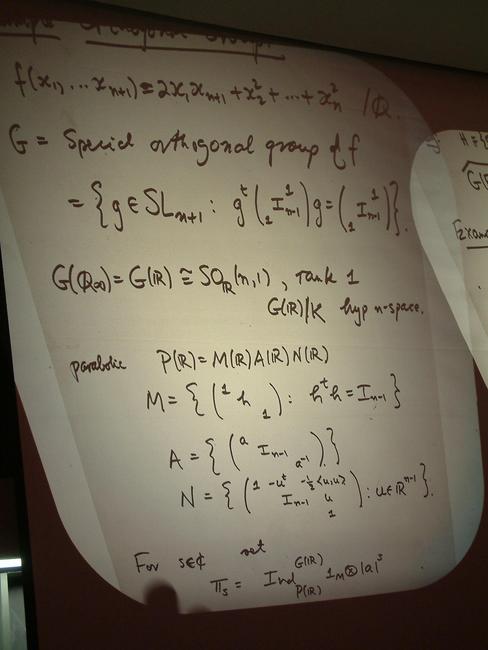 Example Orthogonal Groups.
f(x₁, ... xₙ₊₁) = 2x₁xₙ₊₁ + x₂² + ... + xₙ² /ℚ.
G = Special orthogonal group of f
= { g ∈ SLₙ₊₁ : gᵗ ( ₁ Iₙ₋₁ ¹ ) g = ( ₁ Iₙ₋₁ ¹ ) }.
G(ℚ∞) = G(ℝ) ≅ SO_ℝ(n,1) , rank 1
G(ℝ)/K hyp n-space.
parabolic P(ℝ) = M(ℝ)A(ℝ)N(ℝ)
M = { ( 1 h 1 ) : hᵗh = Iₙ₋₁ }
A = { ( a Iₙ₋₁ a⁻¹ ) }
N = { ( 1 -uᵗ -½<u,u>
Iₙ₋₁ u
1 ) : u ∈ ℝⁿ⁻¹ }.
For s∈ℂ set
πₛ = Ind_P(ℝ)^G(ℝ) 1_M ⊗ |a|ˢ
H = {
G(
Exam